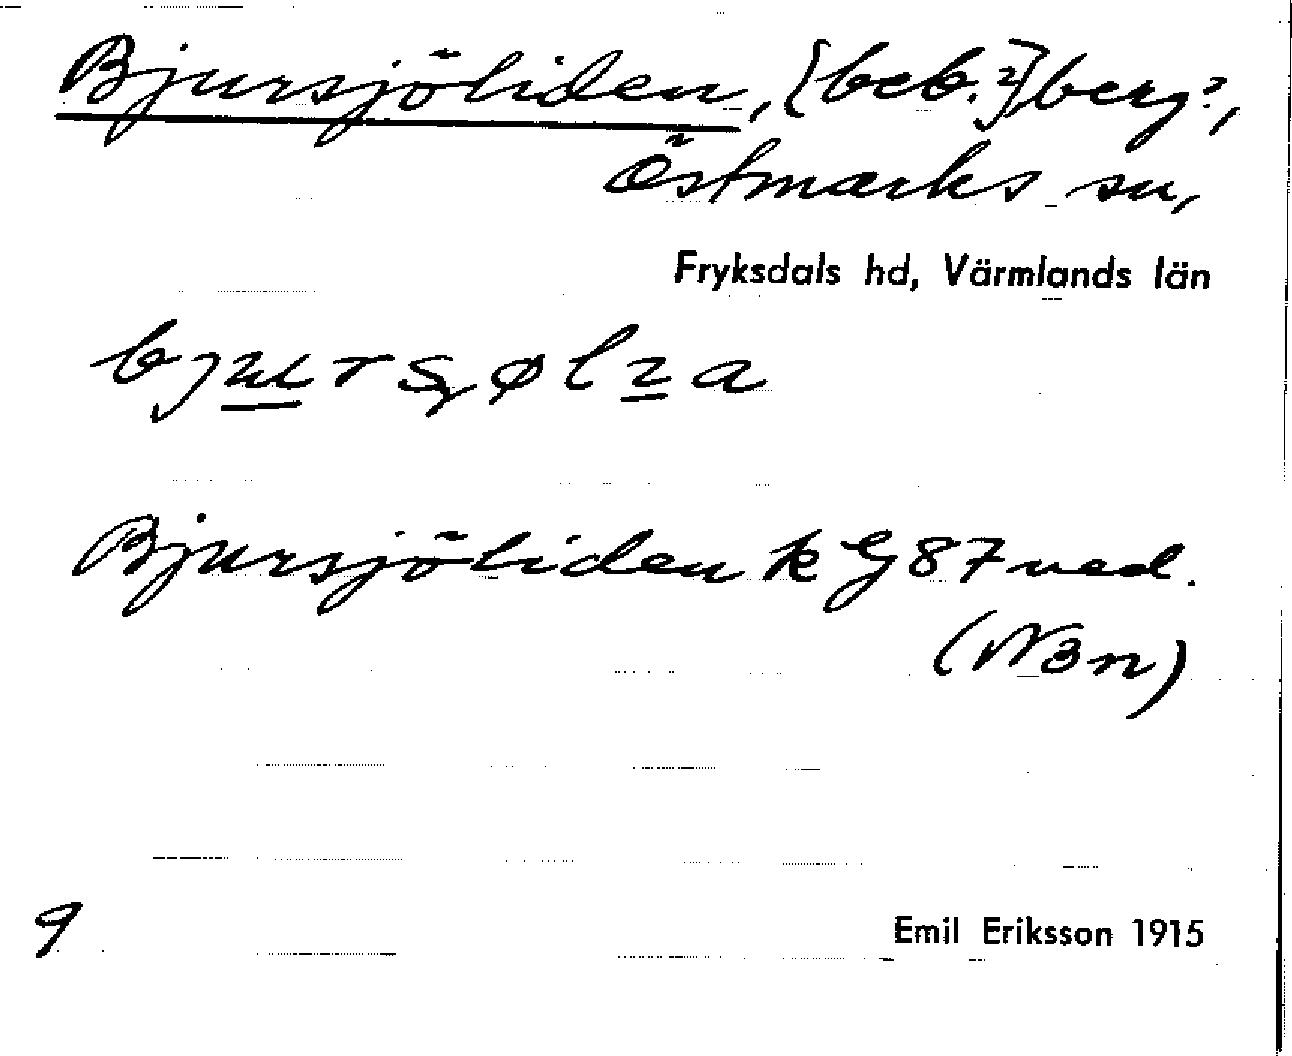 Bjursjöliden, [beb.?] berg?,
Östmarks sn,
Fryksdals hd, Värmlands län
Bjursjöliden k G 87 ned.
(NBn)
9
Emil Eriksson 1915